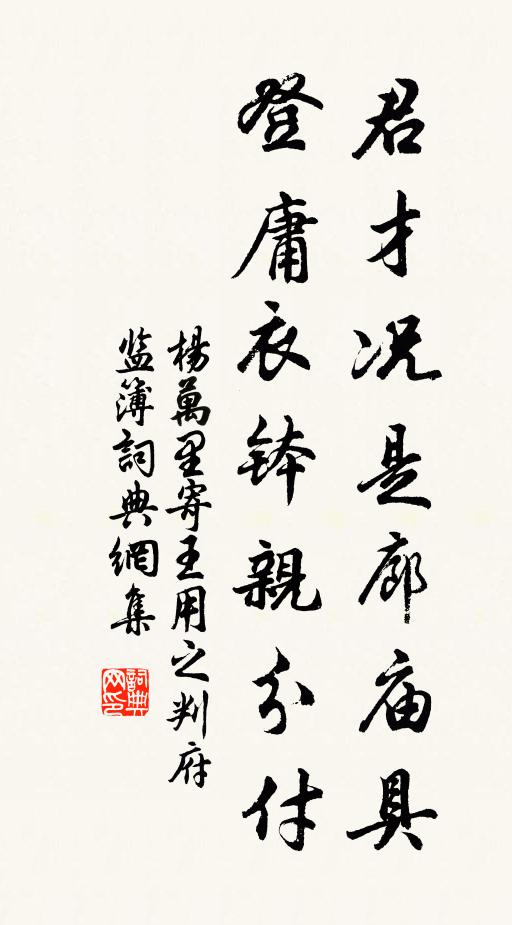 君才况是廊庙具
登庸衣钵親分付
楊萬里寄王用之判府
监簿詞典網集
詞典网印